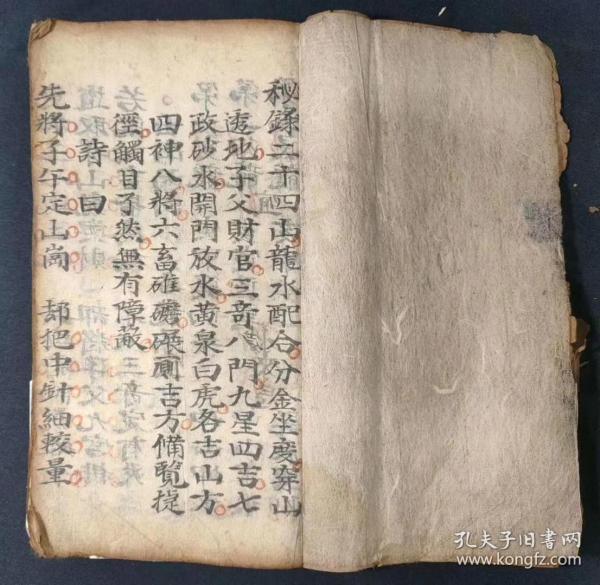 秘錄二十四山龍水配合分金坐度穿山
透地子父財官三奇八門九星四吉七
政砂水開門放水黃泉白虎各吉山方
四神八將六畜碓磨碾廁吉方備覽捷
徑觸目了然無有障蔽
詩曰
先將子午定山崗 却把中針細較量
孔夫子旧书网
www.kongfz.com